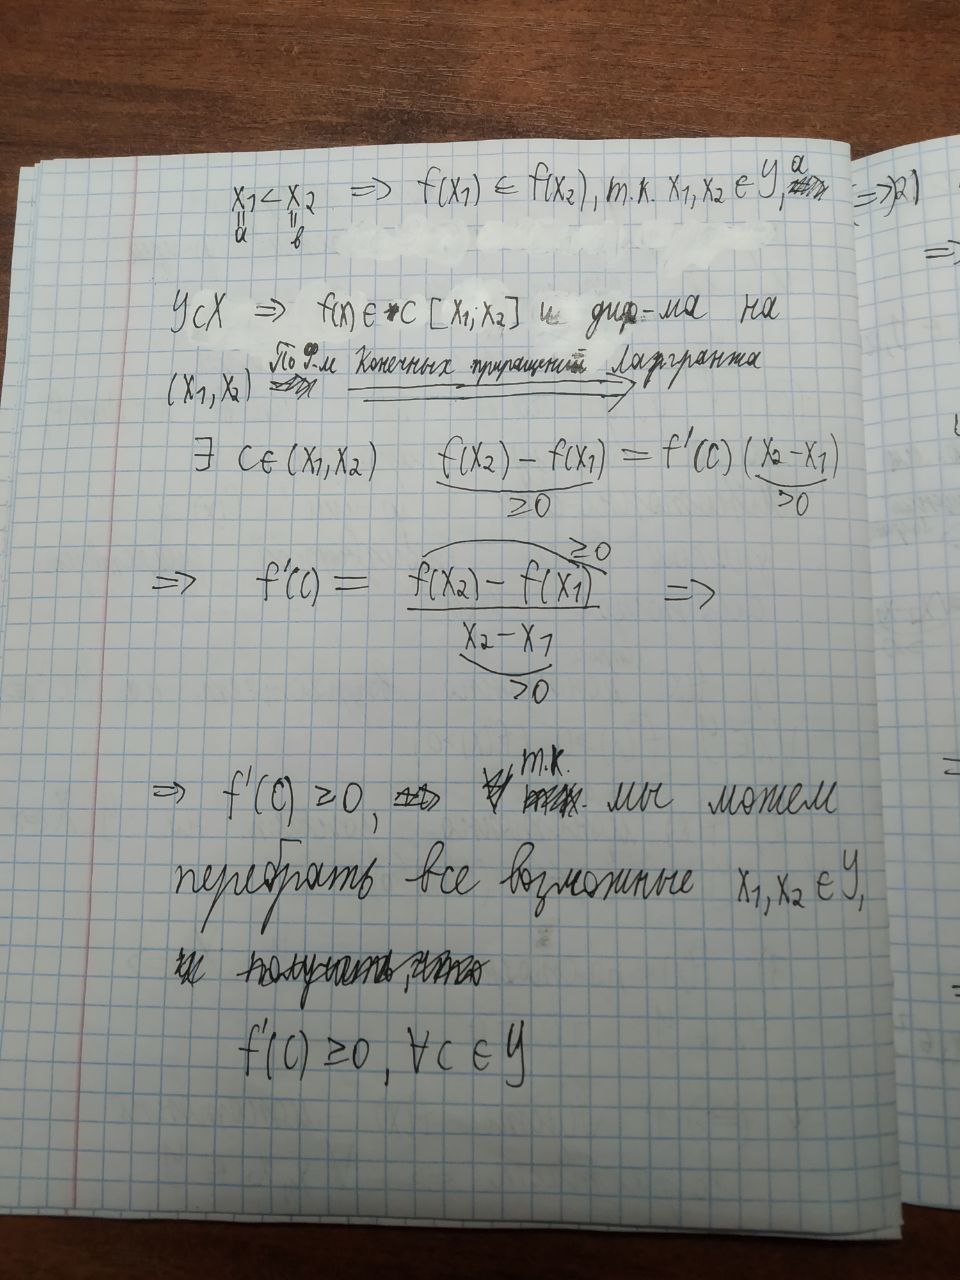 x₁ < x₂ => f(x₁) ≤ f(x₂), т.к. x₁, x₂ ∈ Y, а
‖ ‖
a в
Y⊂X => f(x) ∈ C [x₁; x₂] и диф-ма на
По Ф-м Конечных приращений Лагранжа
(x₁, x₂) =>
∃ c ∈ (x₁, x₂) f(x₂) − f(x₁) = f'(c) (x₂−x₁)
≥0 >0
≥0
=> f'(c) = f(x₂) − f(x₁) =>
x₂ − x₁
>0
т.к.
=> f'(c) ≥ 0, ∀ мы можем
перебрать все возможные x₁, x₂ ∈ Y,
и получить, что
f'(c) ≥ 0, ∀c ∈ Y
=>2)
=>